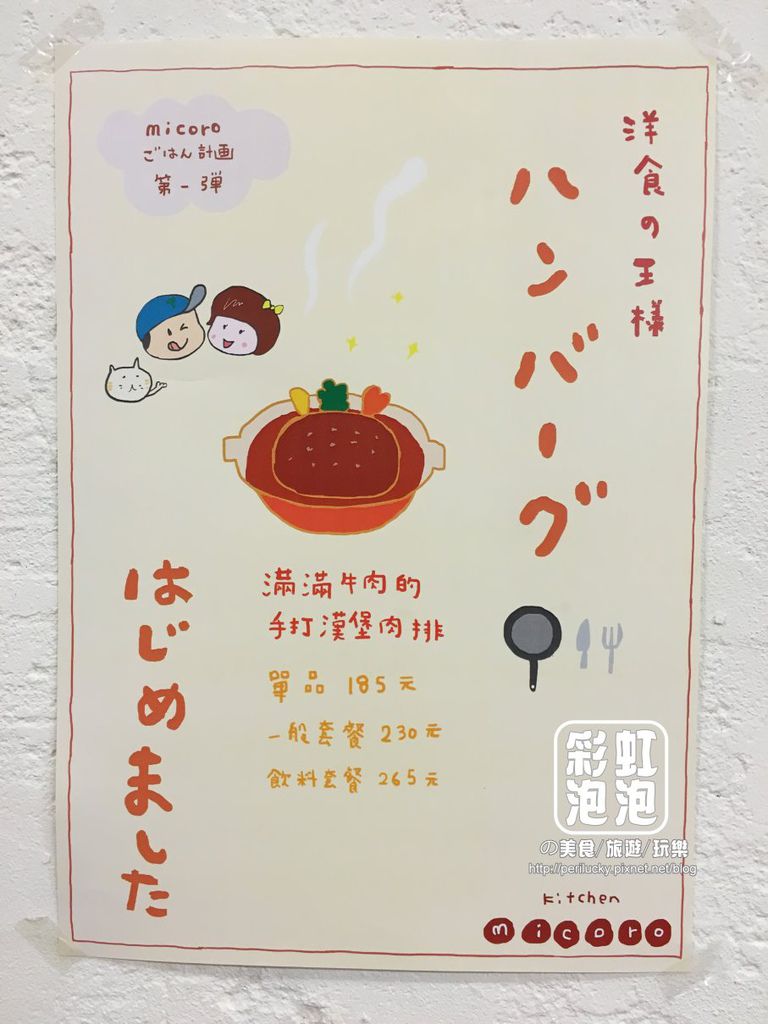 micoro
ごはん計画
第一弾
洋食の王様
ハンバーグ
はじめました
滿滿牛肉的
手打漢堡肉排
單品 185元
一般套餐 230元
飲料套餐 265元
彩虹
泡泡
の美食/旅遊/玩樂
http://perilucky.pixnet.net/blog
kitchen
micoro